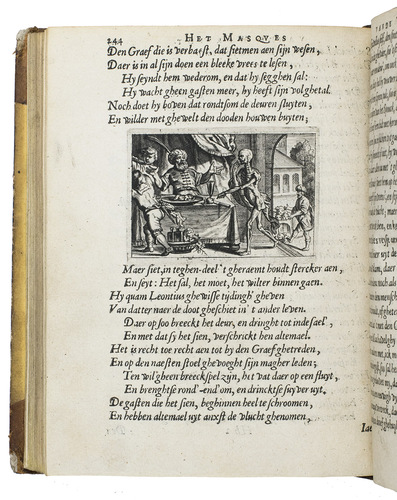 244 HET MASQUES
Den Graef die is verbaest, dat siet men aen sijn wesen,
Daer is in al sijn doen een bleeke vrees te lesen,
Hy seyndt hem wederom, en dat hy segghen sal:
Hy wacht gheen gasten meer, hy heeft sijn vol ghetal.
Noch doet hy boven dat rondtsom de deuren sluyten,
En wilder met ghewelt den dooden houwen buyten;
Maer siet, in teghen-deel 't gheraemt houdt stercker aen,
En seyt: Het sal, het moet, het wilter binnen gaen.
Hy quam Leontius ghewisse tijdingh' gheven
Van datter naer de doot gheschiet in 't ander leven.
Daer op soo breeckt het deur, en dringht tot inde sael,
En met dat sy het sien, verschrickt hen altemael.
Het is recht toe recht aen tot by den Graef ghetreden,
En op den naesten stoel ghevoeght sijn magher leden;
Ten wil gheen breeckspel zijn, het vat daer op een fluyt,
En brenghtse rond'-end'om, en drincktse suyver uyt.
De gasten die het sien, beghinnen heel te schroomen,
En hebben altemael uyt anxst de vlucht ghenomen,
Iae